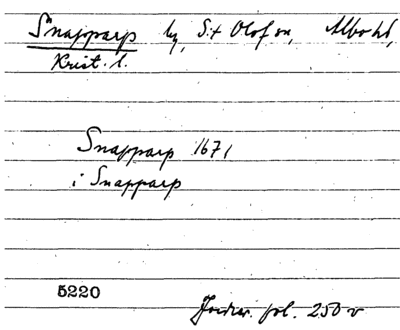 Snapparp by, S:t Olof sn, Albo hd,
Krist. l.
Snapparp 1671
i Snapparp
5220
Jordrev. fol. 250 v